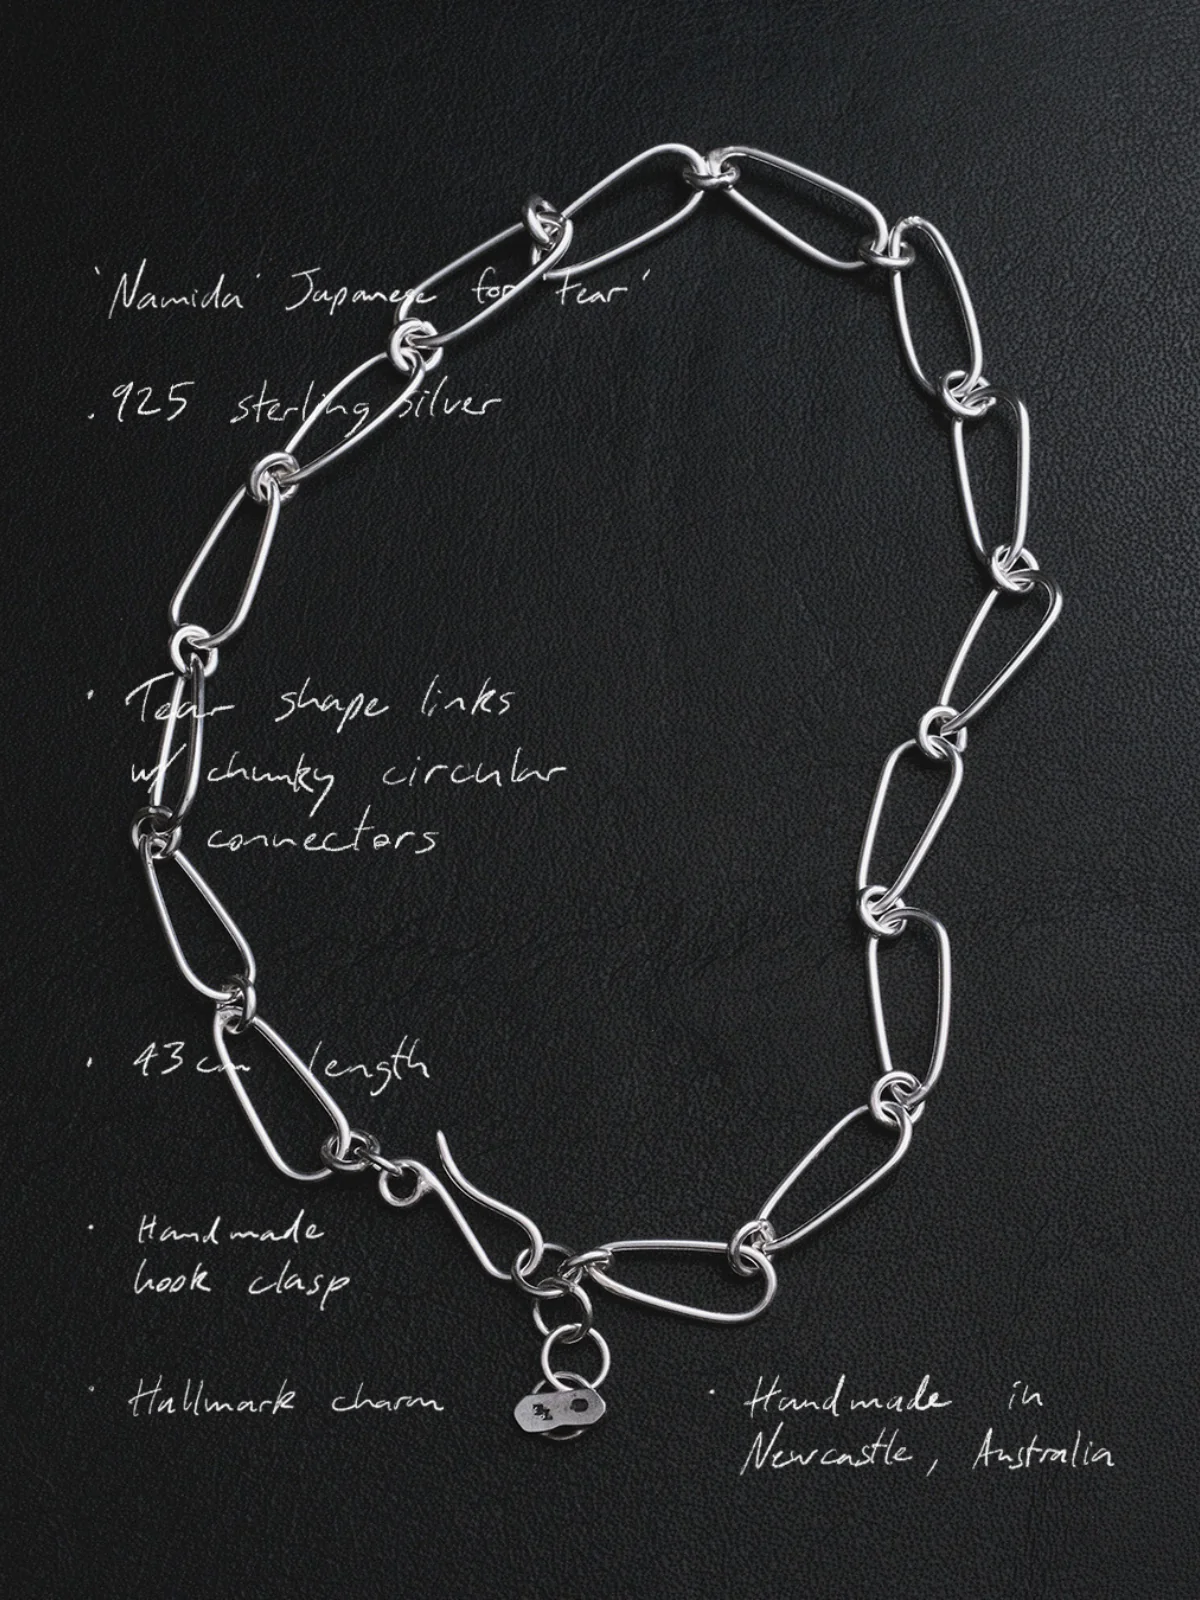 'Namida' Japanese for 'tear'
.925 sterling silver
· Tear shape links
w/ chunky circular
connectors
· 43cm length
· Handmade
hook clasp
· Hallmark charm
· Handmade in
Newcastle, Australia